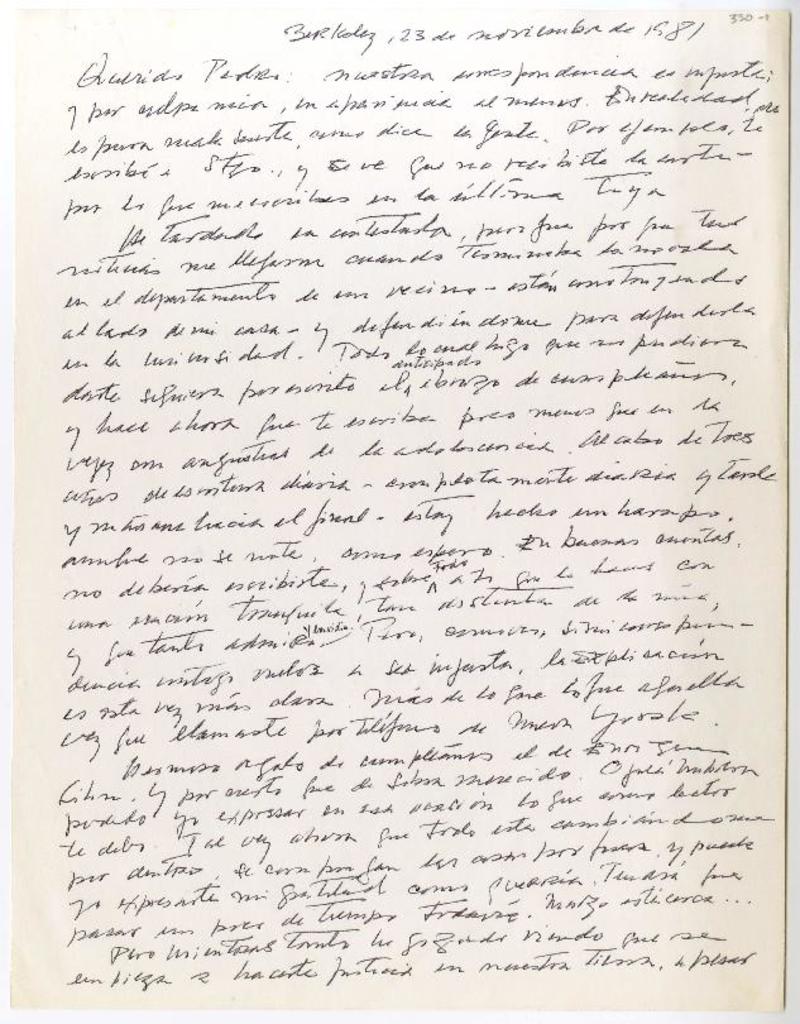 330-1
Berkeley, 23 de noviembre de 1981
Querido Pedro: nuestra correspondencia es injusta;
y por culpa mía, en apariencia al menos. En realidad,
es pura mala suerte, como dice la gente. Por ejemplo, te
escribí a Stgo., y se ve que no recibiste la carta
por lo que me escribes en la última tuya
He tardado en contestarla, porque
noticias me llegaron cuando terminaba la novela
en el departamento de un vecino - están construyendo
al lado de mi casa - y defendiéndome para defenderla
en la universidad. Todo lo cual hizo que no pudiera
darte siquiera por escrito el anticipado abrazo de cumpleaños,
y hace ahora que te escriba poco menos que en la
vejez con angustias de la adolescencia. Al cabo de tres
años de escritura diaria - completamente diaria y tarde
y mañana hacia el final - estoy hecho un harapo,
aunque no se note, como espero. En buenas cuentas,
no debería escribirte, y sobre todo a ti que lo haces con
una tranquila, tan distinta de la mía,
y que tanto admiro y envidio. Pero, si mi correspon-
dencia contigo vuelve a ser injusta, la explicación
es esta vez más clara. Más de lo que lo fue aquella
vez que llamaste por teléfono de Nueva York.
Hermoso regalo de cumpleaños el de
Y por cierto que de sobra merecido. Ojalá hubiera
podido yo expresar en esa ocasión lo que como lector
te debo. Tal vez ahora que todo está cambiándome
por dentro, se compongan las cosas por fuera, y pueda
yo expresarte mi gratitud como querría. Tendrá que
pasar un poco de tiempo todavía. Marzo está cerca...
Pero mientras tanto he gozado viendo que se
empieza a hacerte justicia en nuestra tierra, a pesar